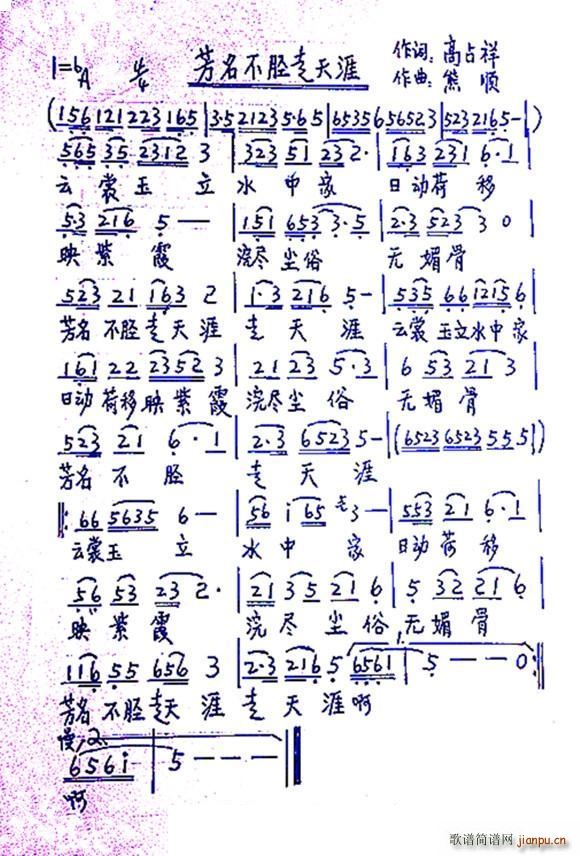 芳名不胫走天涯
1=♭A 4/4
作词:高占祥
作曲:熊 顺
(156 1212 23 165|3·5 2123 5·6 5|6535 656523|523 2165-|)
565 35 2312 3|323 51 232·|163 231 6·1
云裳玉 立 水中家 日动荷移
5·3 216 5--|151 653 3·5|2·3 523 3 0
映紫 霞 浣尽尘俗 无媚骨
523 21 163 2|1·3 216 5-|535 66 1215 6
芳名不胫走天涯 走 天 涯 云裳玉立水中家
161 22 2352 3|21 23 5·3|6 53 21 3
日动荷移映紫霞 浣尽尘 俗 无媚骨
523 21 6·1|2·3 6523 5-|(6523 6523 555|)
芳名不 胫 走 天涯
‖:66 5635 6-|56 i 65 3-|553 21 6·1
云裳玉 立 水中 家 日动荷 移
56 53 23 2·|21 35 21 6|5 32 21 6
映紫霞 浣尽 尘俗 无媚骨
116 55 656 3|2·3 216 5 6561|5--0:‖
1.
芳名不胫走天 涯 走 天涯啊
慢 2.
6561|5---‖
啊
歌谱简谱网
jianpu.cn